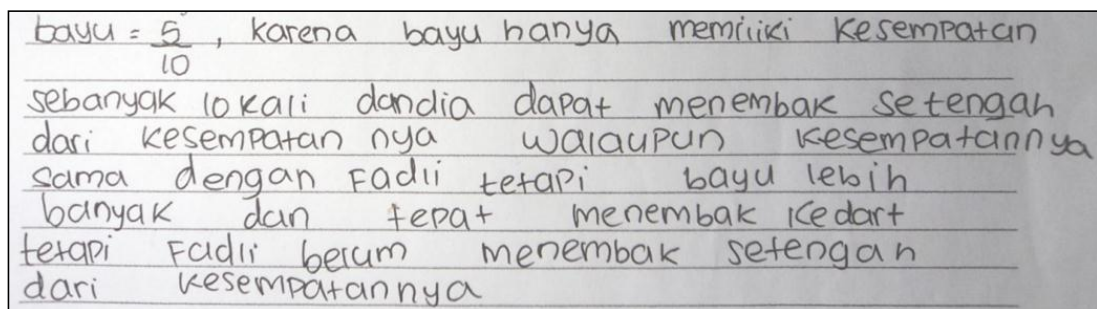 bayu = 5/10, karena bayu hanya memiliki kesempatan
sebanyak 10 kali dan dia dapat menembak setengah
dari kesempatan nya walaupun kesempatannya
sama dengan Fadli tetapi bayu lebih
banyak dan tepat menembak ke dart
tetapi Fadli belum menembak setengah
dari kesempatannya